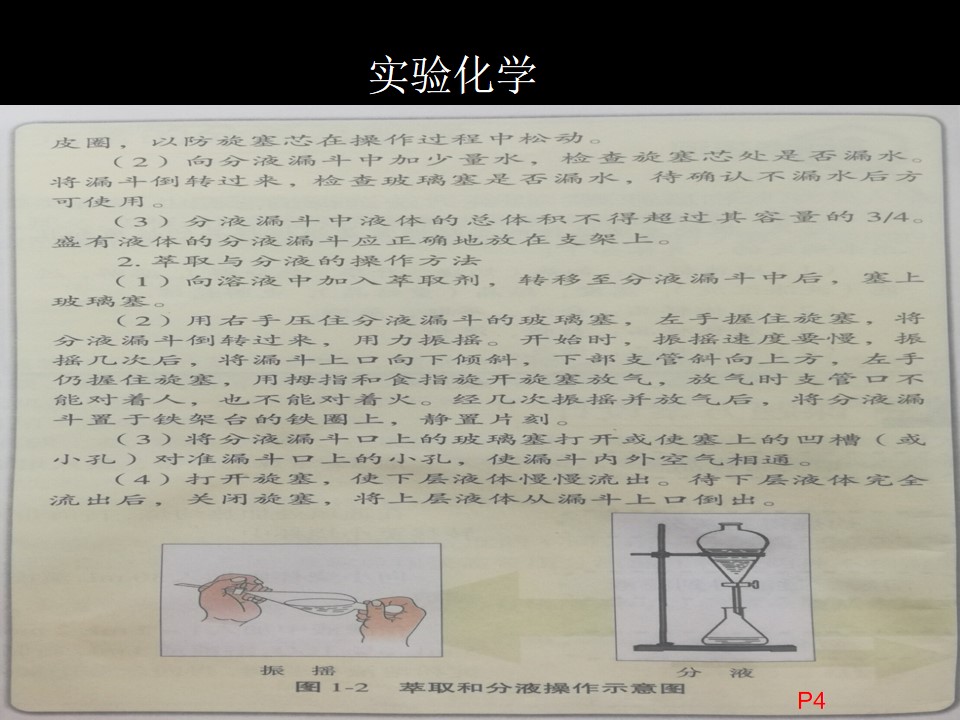 实验化学
皮圈，以防旋塞芯在操作过程中松动。
（2）向分液漏斗中加少量水，检查旋塞芯处是否漏水。
将漏斗倒转过来，检查玻璃塞是否漏水，待确认不漏水后方
可使用。
（3）分液漏斗中液体的总体积不得超过其容量的 3/4。
盛有液体的分液漏斗应正确地放在支架上。
2. 萃取与分液的操作方法
（1）向溶液中加入萃取剂，转移至分液漏斗中后，塞上
玻璃塞。
（2）用右手压住分液漏斗的玻璃塞，左手握住旋塞，将
分液漏斗倒转过来，用力振摇。开始时，振摇速度要慢，振
摇几次后，将漏斗上口向下倾斜，下部支管斜向上方，左手
仍握住旋塞，用拇指和食指旋开旋塞放气，放气时支管口不
能对着人，也不能对着火。经几次振摇并放气后，将分液漏
斗置于铁架台的铁圈上，静置片刻。
（3）将分液漏斗口上的玻璃塞打开或使塞上的凹槽（或
小孔）对准漏斗口上的小孔，使漏斗内外空气相通。
（4）打开旋塞，使下层液体慢慢流出。待下层液体完全
流出后，关闭旋塞，将上层液体从漏斗上口倒出。
振 摇
分 液
图 1-2 萃取和分液操作示意图
P4